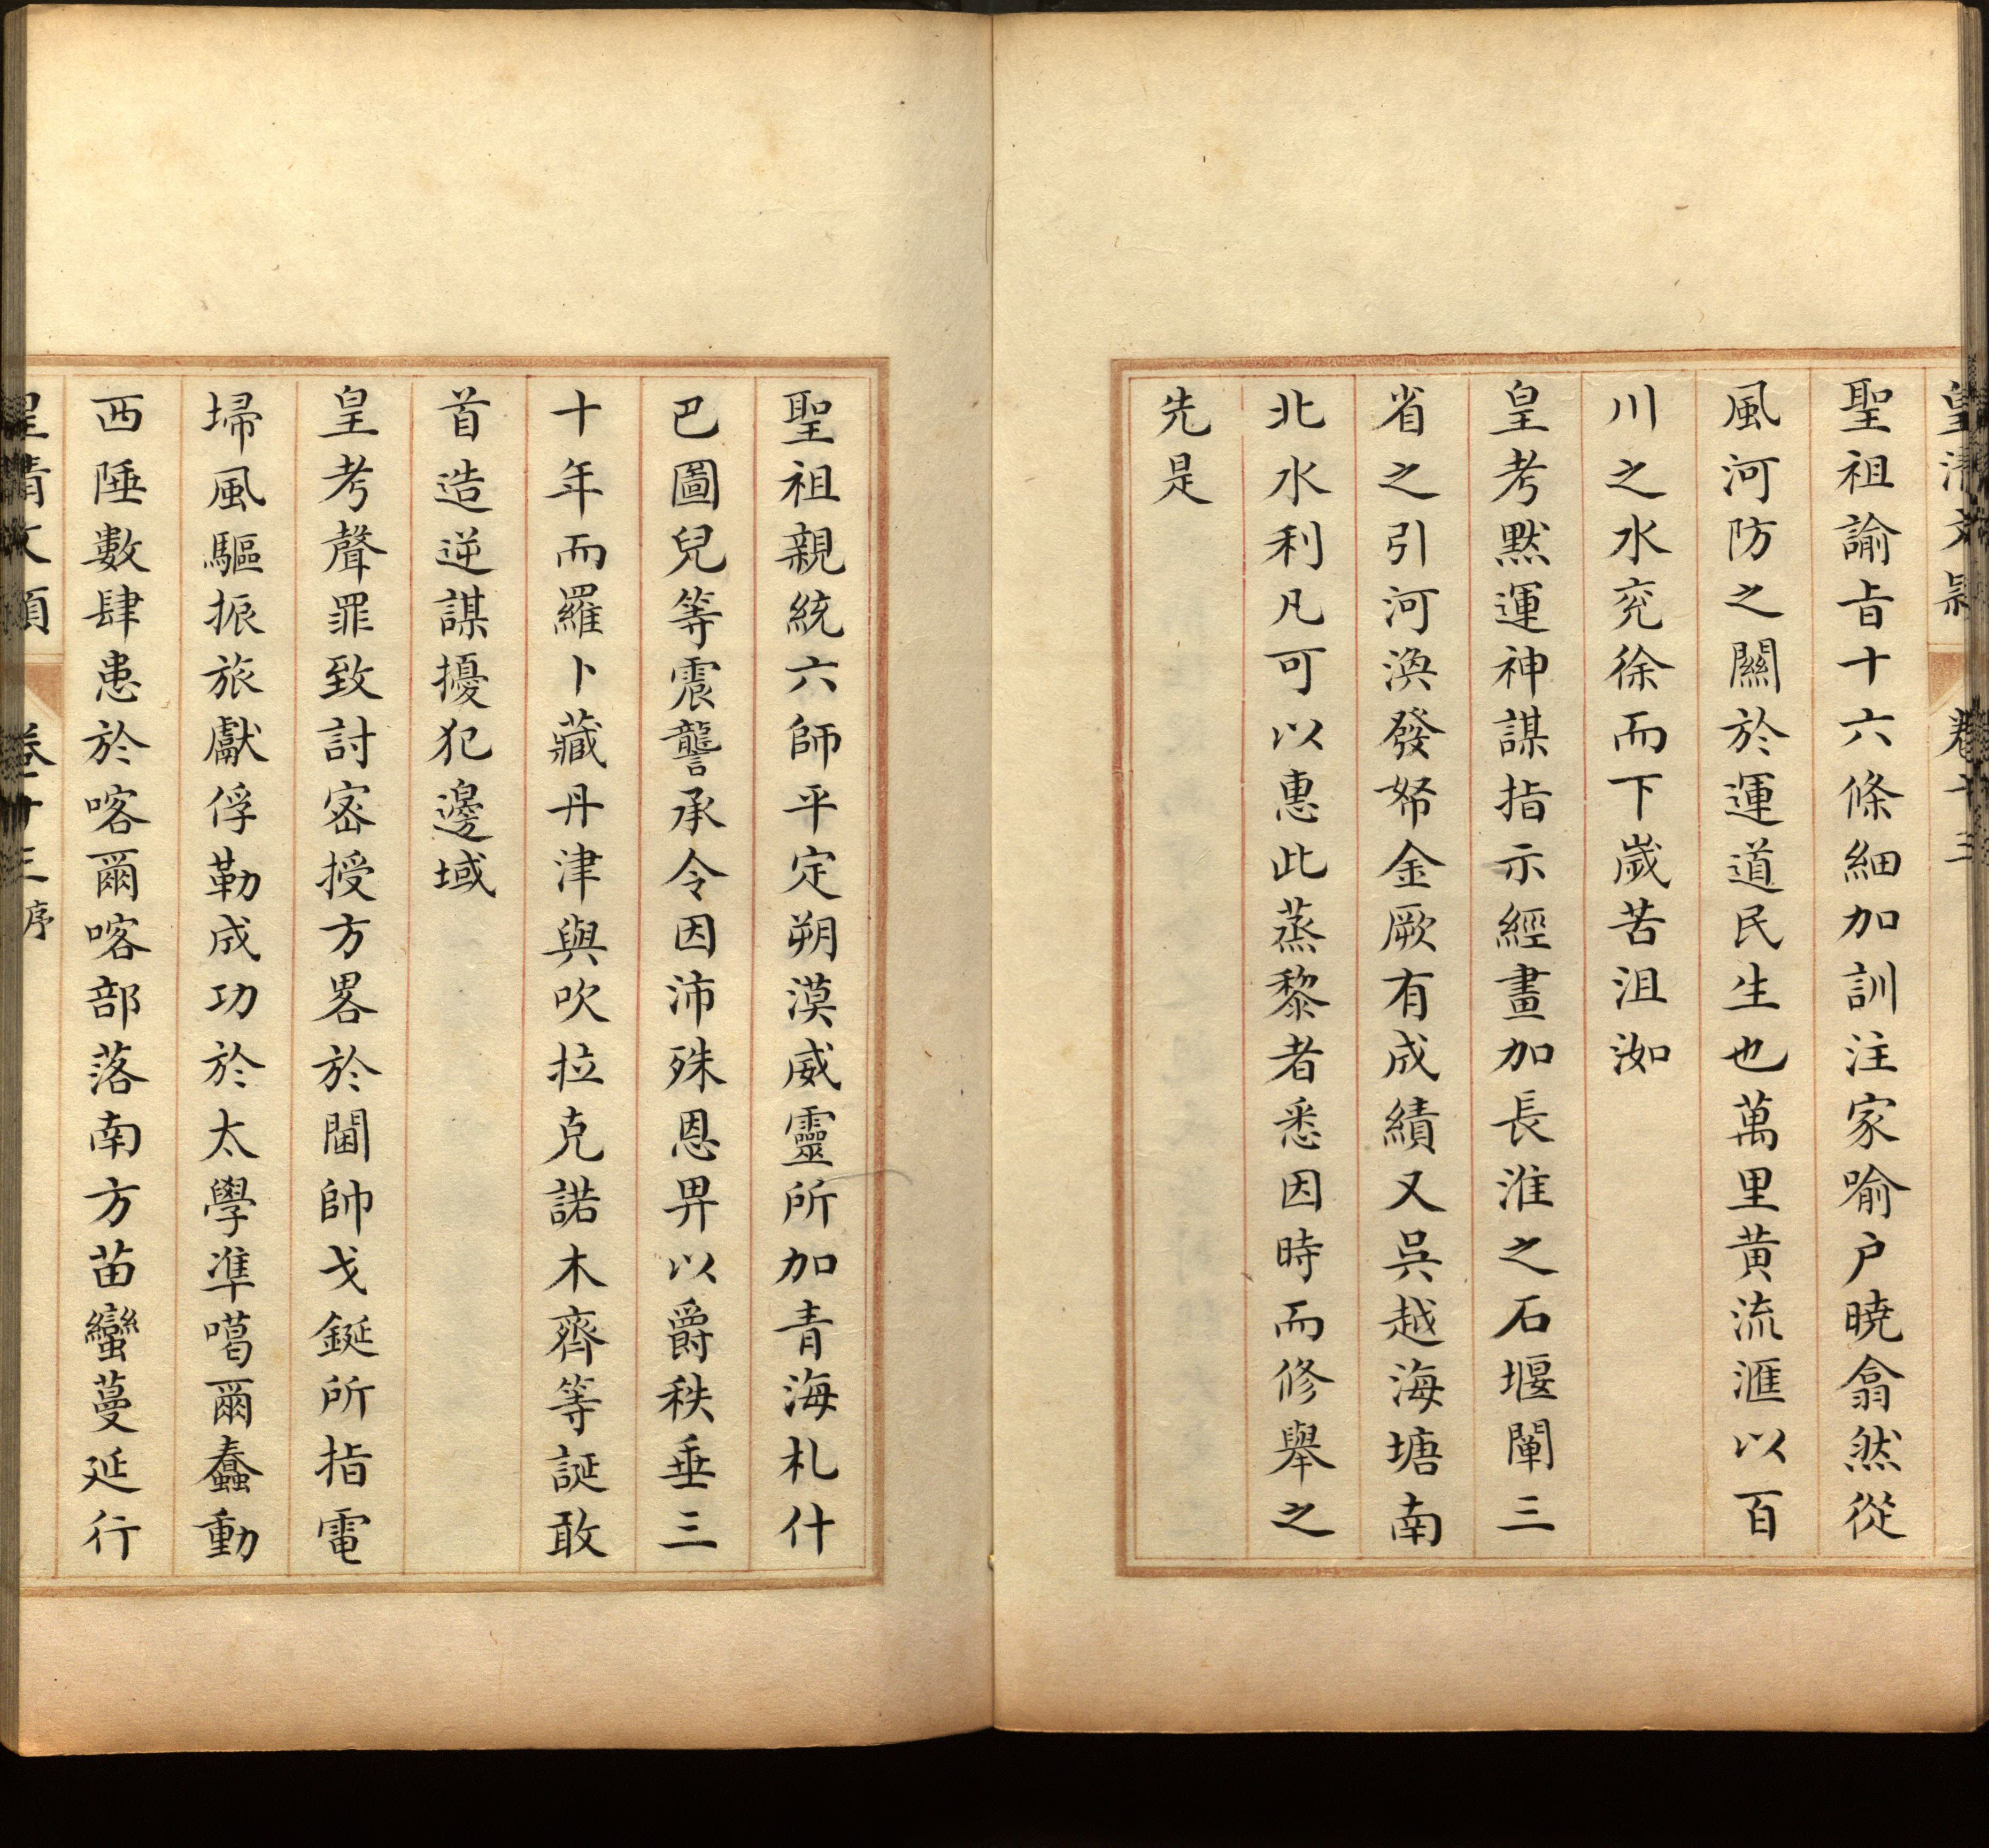 皇清文穎 卷十三
聖祖諭旨十六條細加訓注家喻户曉翕然從
風河防之關於運道民生也萬里黄流滙以百
川之水兖徐而下嵗苦沮洳
皇考默運神謀指示經畫加長淮之石堰闡三
省之引河渙發帑金厥有成績又吳越海塘南
北水利凡可以惠此蒸黎者悉因時而修舉之
先是
聖祖親統六師平定朔漠威靈所加青海札什
巴圖兒等震讋承令因沛殊恩畀以爵秩垂三
十年而羅卜藏丹津與吹拉克諾木齊等誕敢
首造逆謀擾犯邊域
皇考聲罪致討宻授方畧於閫帥戈鋋所指電
埽風驅振旅獻俘勒成功於太學凖噶爾蠢動
西陲數肆患於喀爾喀部落南方苗蠻蔓延行
皇清文穎 卷十三 序